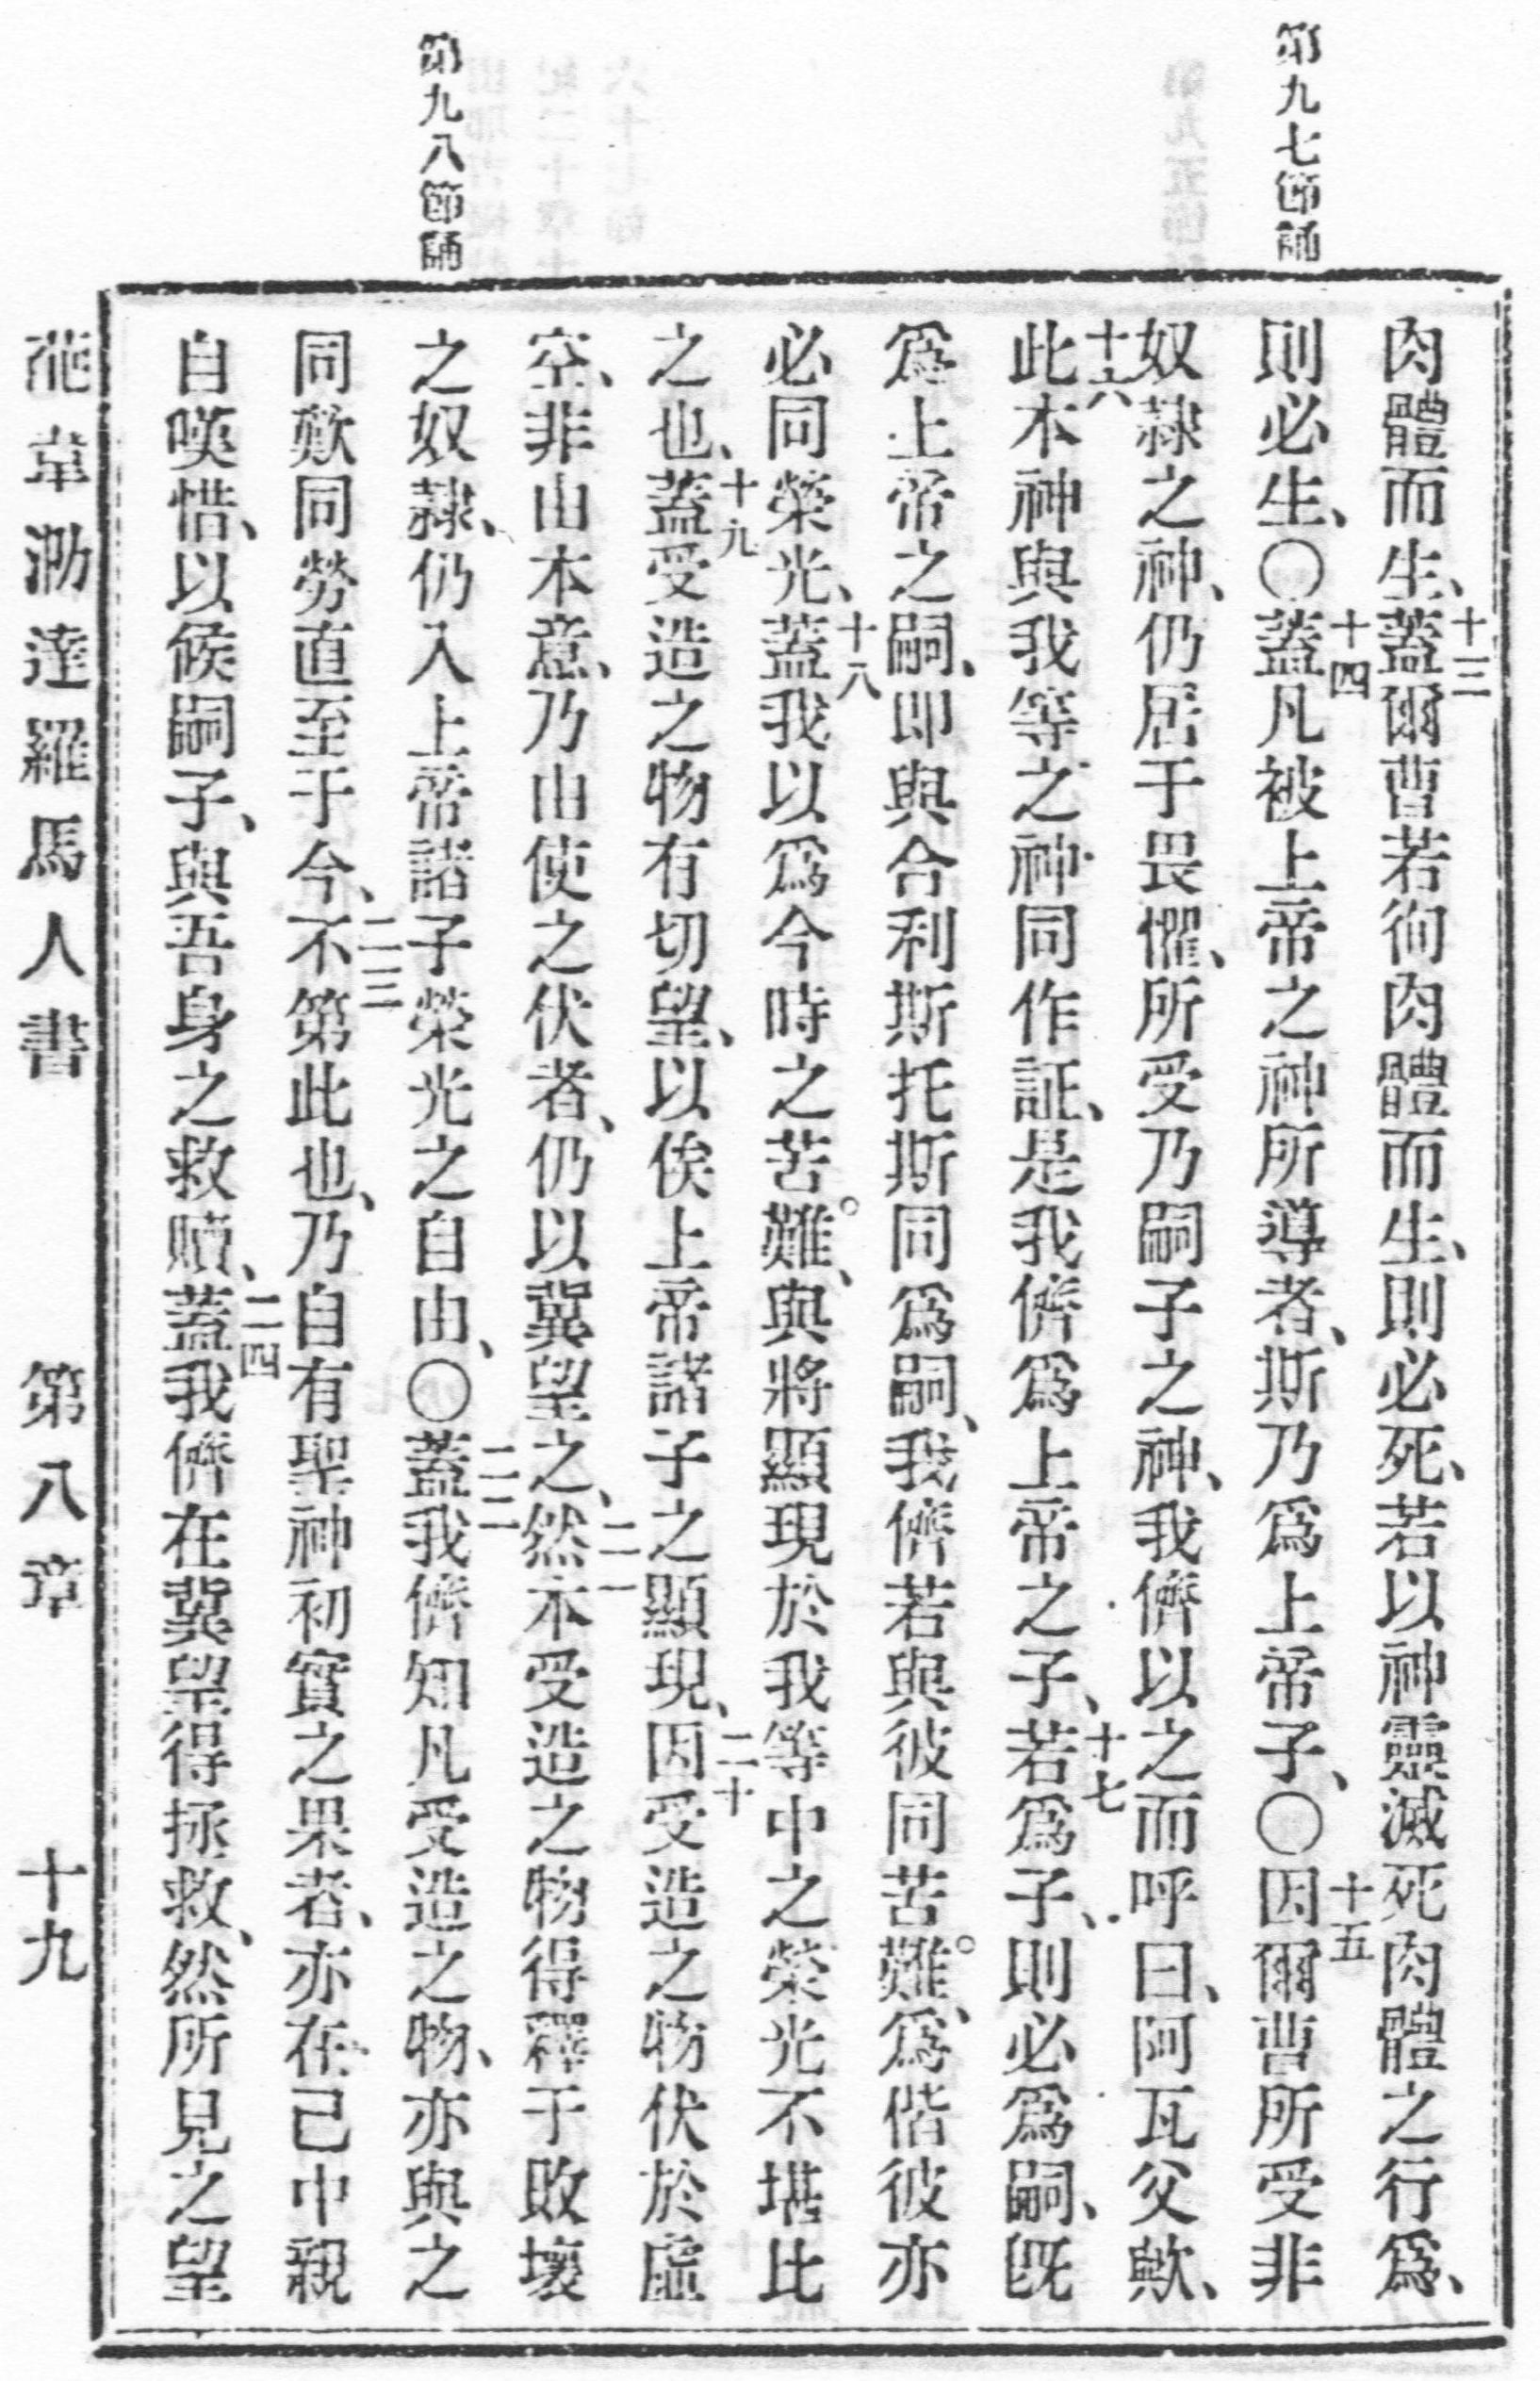 第九七節誦
第九八節誦
肉體而生、十三蓋爾曹若徇肉體而生、則必死、若以神靈滅死肉體之行爲、
則必生、○十四蓋凡被上帝之神所導者、斯乃爲上帝子、○十五因爾曹所受非
奴隸之神、仍居于畏懼、所受乃嗣子之神、我儕以之而呼曰、阿瓦父歟、
十六此本神與我等之神同作証、是我儕爲上帝之子、十七若爲子、則必爲嗣、既
爲上帝之嗣、即與合利斯托斯同爲嗣、我儕若與彼同苦難、爲偕彼亦
必同榮光、十八蓋我以爲今時之苦難、與將顯現於我等中之榮光不堪比
之也、十九蓋受造之物有切望、以俟上帝諸子之顯現、二十因受造之物伏於虛
空、非由本意、乃由使之伏者、仍以冀望之、二一然本受造之物得釋于敗壞
之奴隸、仍入上帝諸子榮光之自由、○二二蓋我儕知凡受造之物、亦與之
同歎同勞直至于今、二三不第此也、乃自有聖神初實之果者、亦在己中親
自嘆惜、以候嗣子、與吾身之救贖、二四蓋我儕在冀望得拯救、然所見之望
葩韋泐達羅馬人書 第八章 十九